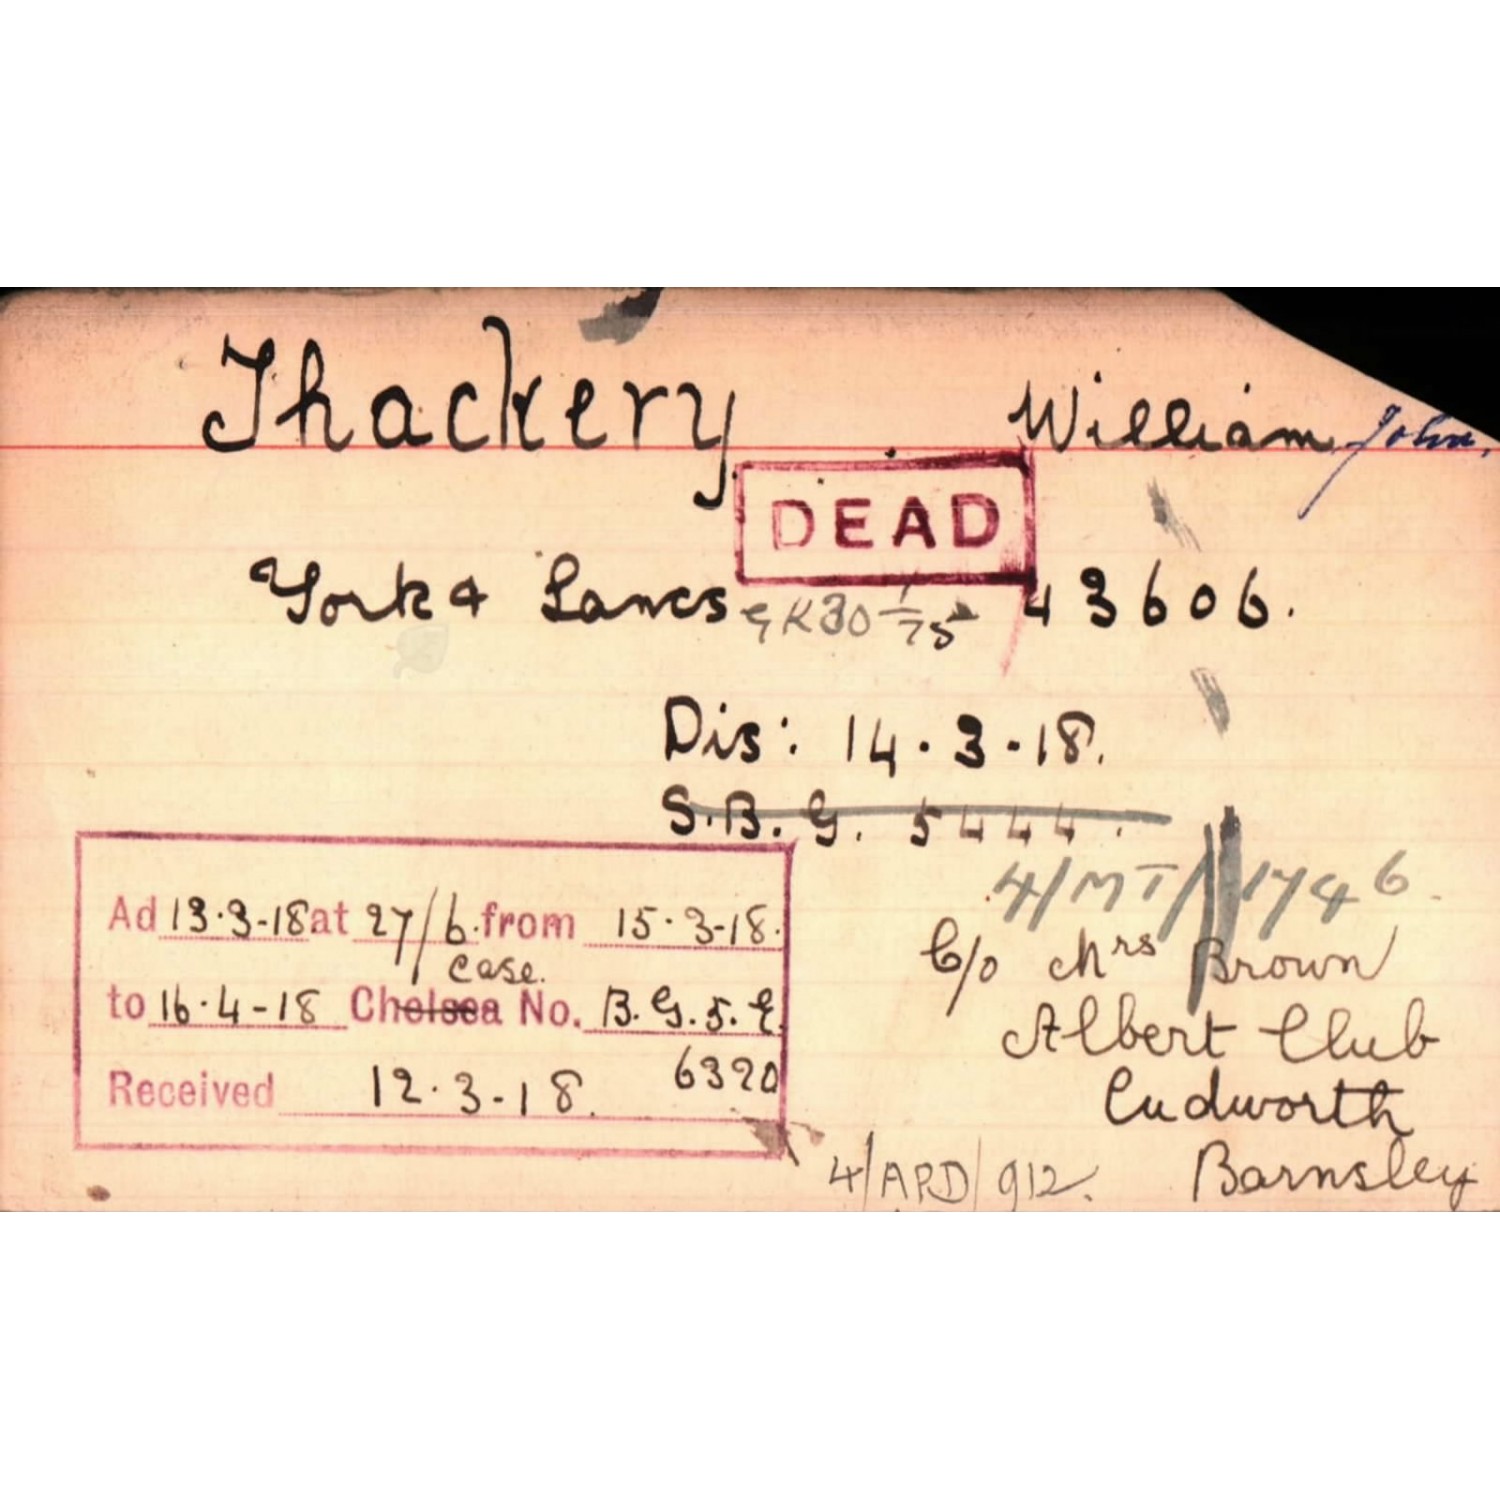 Thackery William John,
DEAD
York & Lancs GK30 1/75 43606.
Dis: 14.3.18.
S.B.G. 5444.
4/MT/1746
Ad 13.3-18 at 27/6 from 15.3-18.
case.
to 16.4-18 Chelsea No. B.G.5.E
6320
Received 12.3-18.
C/o Mrs Brown
Albert Club
Cudworth
Barnsley
4/APD/912.